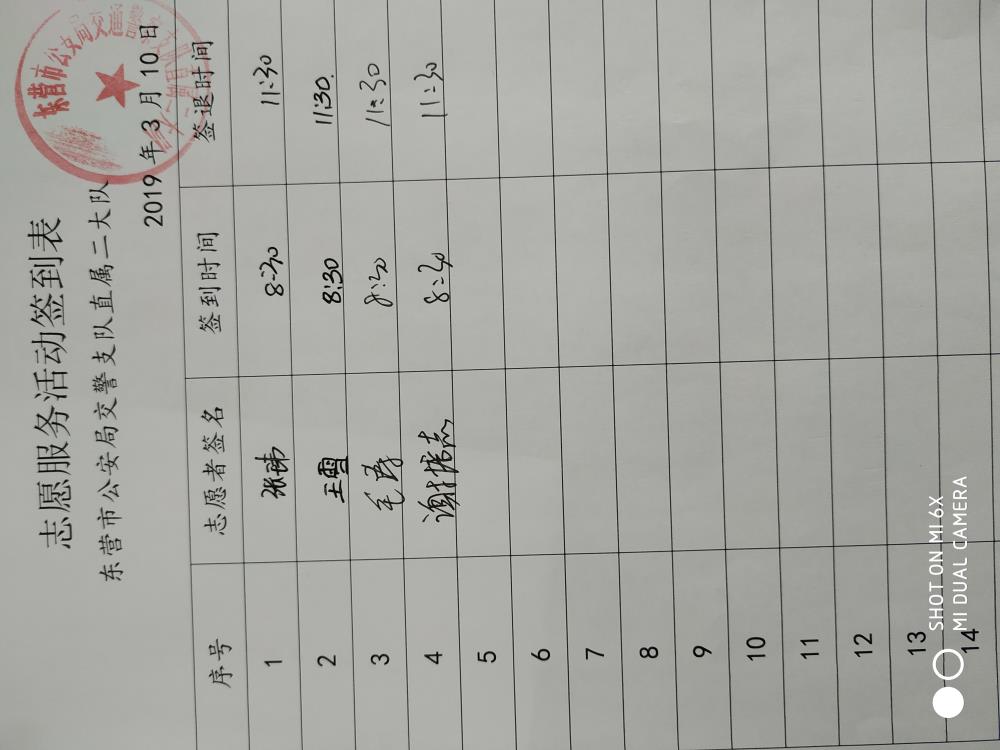 志愿服务活动签到表
东营市公安局交警支队直属二大队
2019 年 3 月 10 日
东营市公安局交通警
序号 志愿者签名 签到时间 签退时间
1 张琳 8:30 11:30
2 王雪 8:30 11:30.
3 毛涛 8:30 11:30
4 谢振杰 8:30 11:30
5
6
7
8
9
10
11
12
13
14
SHOT ON MI 6X
MI DUAL CAMERA